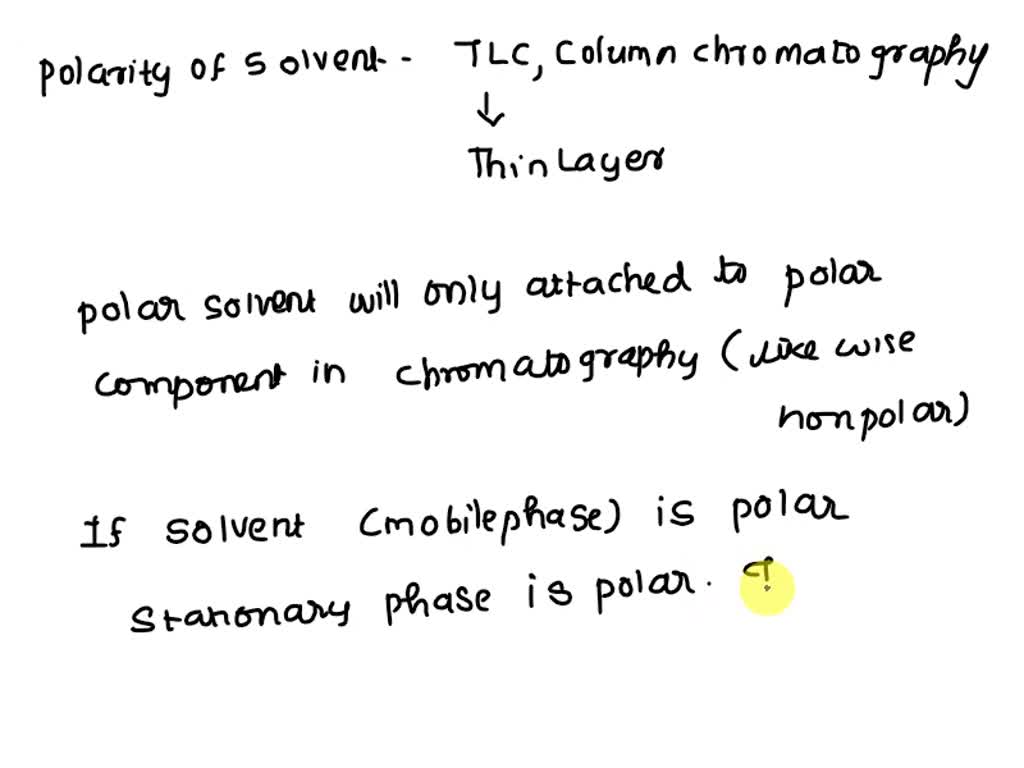 polarity of solvent - TLC, Column chromatography
Thin Layer
polar solvent will only attached to polar
component in chromatography (like wise
nonpolar)
If solvent (mobile phase) is polar
stationary phase is polar.